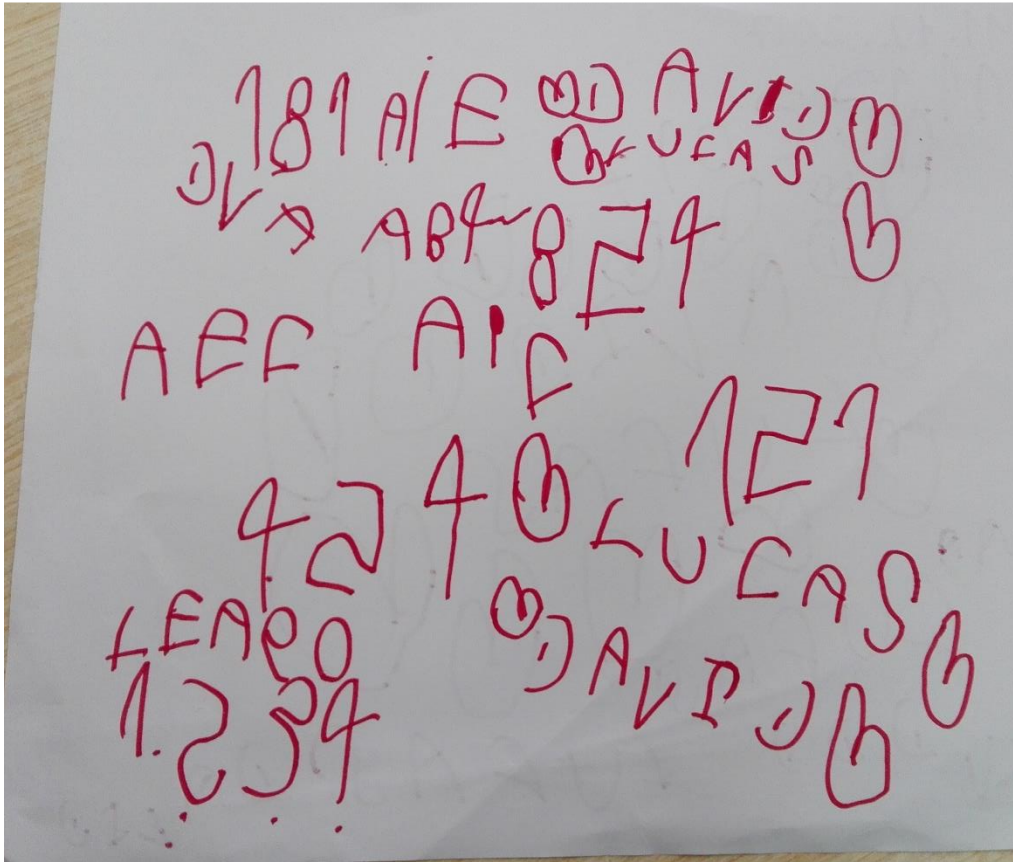 181 AIE DAVID
LUCAS
DVA AB4 824
AEC AIC
121
424 LUCAS
LEARO DAVID
1.234